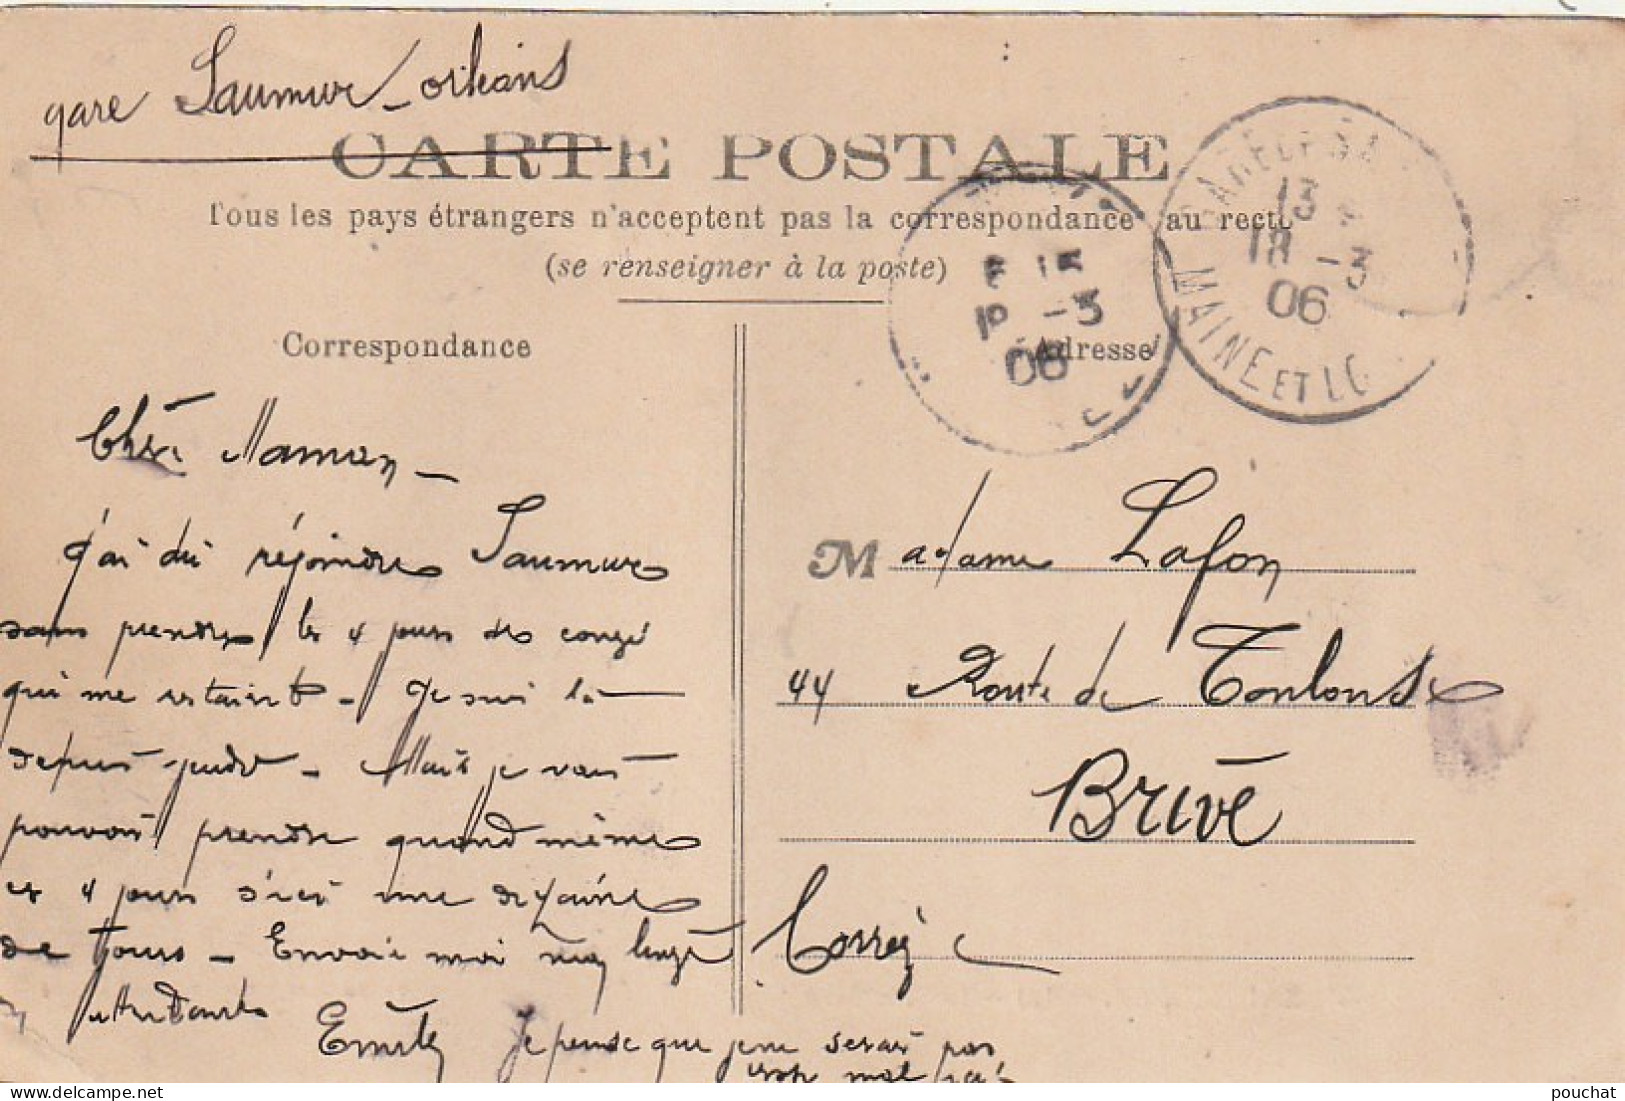 gare Saumur - orléans
CARTE POSTALE
Tous les pays étrangers n'acceptent pas la correspondance au recto
(se renseigner à la poste)
Correspondance
Chère Maman -
J'ai dû rejoindre Saumur
sans prendre les 4 jours de congé
qui me restaient - Je suis là
depuis jeudi - Mais je vais
pouvoir prendre quand même
ces 4 jours d'ici une dizaine
de jours - Envoie moi mon linge
en attendant
Emile
Je pense que je ne serai pas
mal ici
Adresse
13
18 -3
06
MAINE ET LO
-3
06
Madame Lafon
44 Route de Toulouse
Brive
Corrèze
pouchat